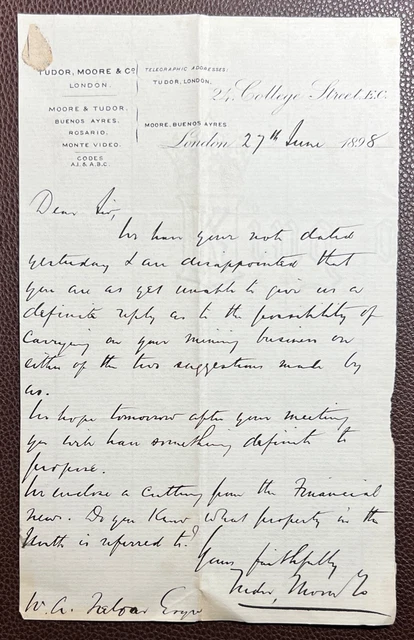 TUDOR, MOORE & Co.
LONDON.
MOORE & TUDOR,
BUENOS AYRES,
ROSARIO,
MONTE VIDEO.
CODES
A.I. & A.B.C.
TELEGRAPHIC ADDRESSES:
TUDOR, LONDON.
MOORE, BUENOS AYRES
24, College Street, E.C.
London 27th June 1898
Dear Sir,
We have your note dated
yesterday & are disappointed that
you are as yet unable to give us a
definite reply as to the possibility of
carrying on your mining business on
either of the two suggestions made by
us.
We hope tomorrow after your meeting
you will have something definite to
propose.
We enclose a cutting from the Financial
News. Do you know what property in the
North is referred to?
Yours faithfully
Tudor, Moore & Co
W. A. Esqre